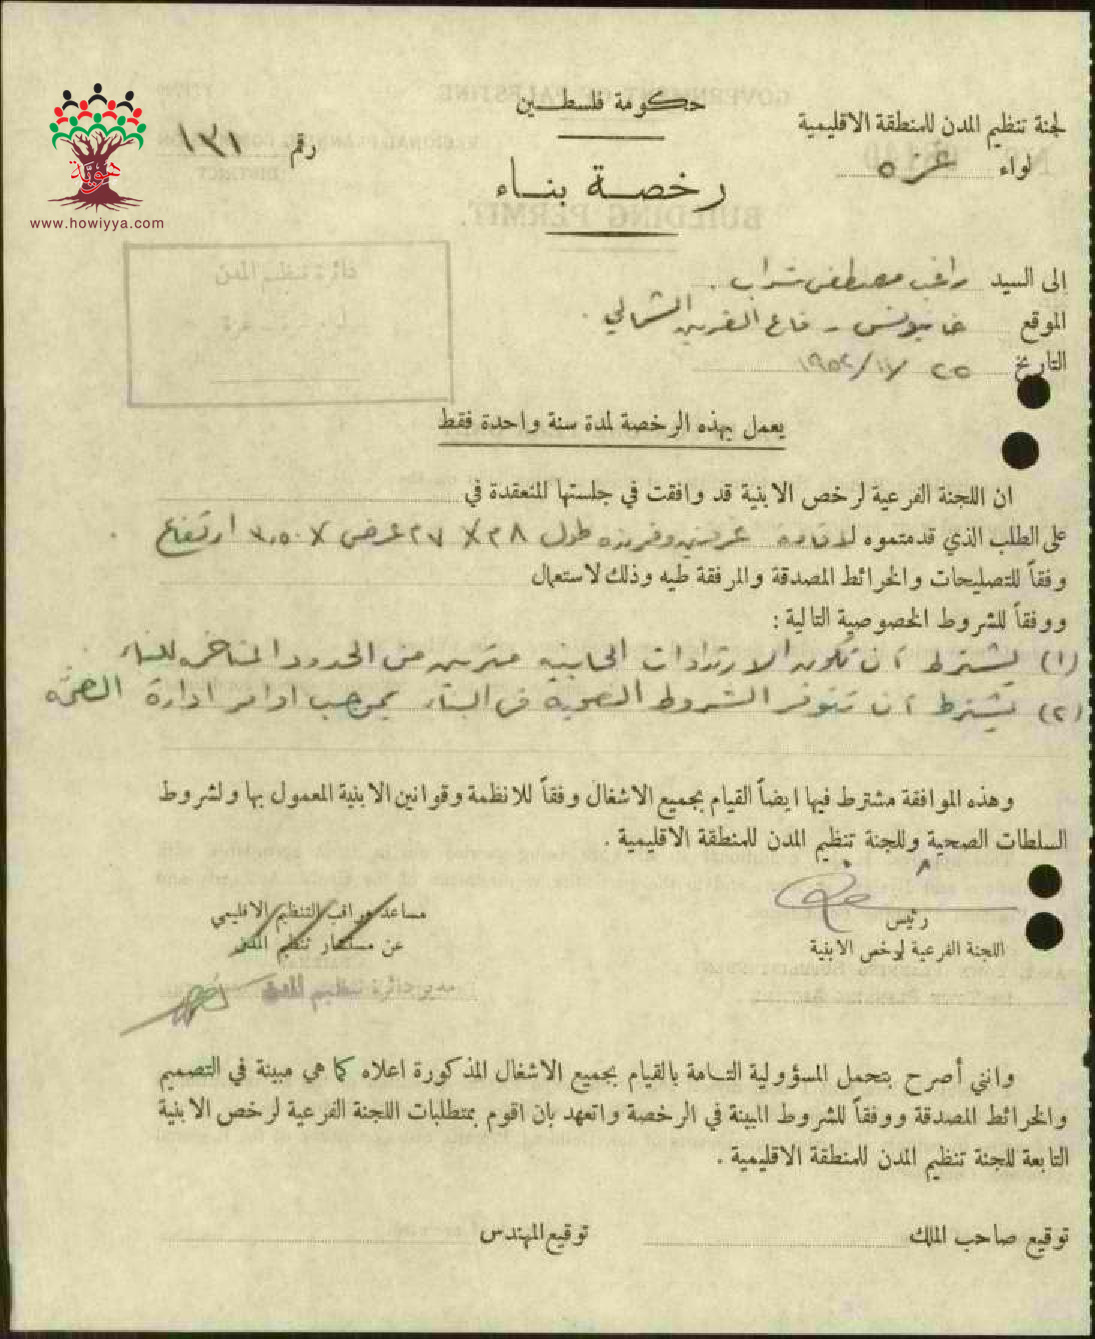 حكومة فلسطين
لجنة تنظيم المدن للمنطقة الاقليمية
لواء غزه
رقم ١٣١
رخصة بناء
هوية
www.howiyya.com
دائرة تنظيم المدن
الى السيد راغب مصطفى شراب .
الموقع خانيونس - قاع القرين الشمالي .
التاريخ ٢٥ /١١/ ١٩٥٢
يعمل بهذه الرخصة لمدة سنة واحدة فقط
ان اللجنة الفرعية لرخص الابنية قد وافقت في جلستها المنعقدة في
على الطلب الذي قدمتموه لاقامة طول ٣٨ر٤ عرض ٣٫٥٠ ارتفاع
وفقاً للتصليحات والخرائط المصدقة والمرفقة طيه وذلك لاستعمال
ووفقاً للشروط الخصوصية التالية :
(١) يشترط أن تكون الارتدادات الجانبيه مترين من الحدود للبناء
(٢) يشترط أن تتوفر الشروط الصحية في البناء بموجب اوامر ادارة الصحة
وهذه الموافقة مشترط فيها ايضاً القيام بجميع الاشغال وفقاً للانظمة وقوانين الابنية المعمول بها ولشروط
السلطات الصحية وللجنة تنظيم المدن للمنطقة الاقليمية .
رئيس
اللجنة الفرعية لرخص الابنية
مساعد مراقب التنظيم الاقليمي
عن مستشار تنظيم المدن
مدير دائرة تنظيم المدن
وانني أصرح بتحمل المسؤولية التامة بالقيام بجميع الاشغال المذكورة اعلاه كما هي مبينة في التصميم
والخرائط المصدقة ووفقاً للشروط المبينة في الرخصة واتعهد بان اقوم بمتطلبات اللجنة الفرعية لرخص الابنية
التابعة للجنة تنظيم المدن للمنطقة الاقليمية .
توقيع صاحب الملك
توقيع المهندس